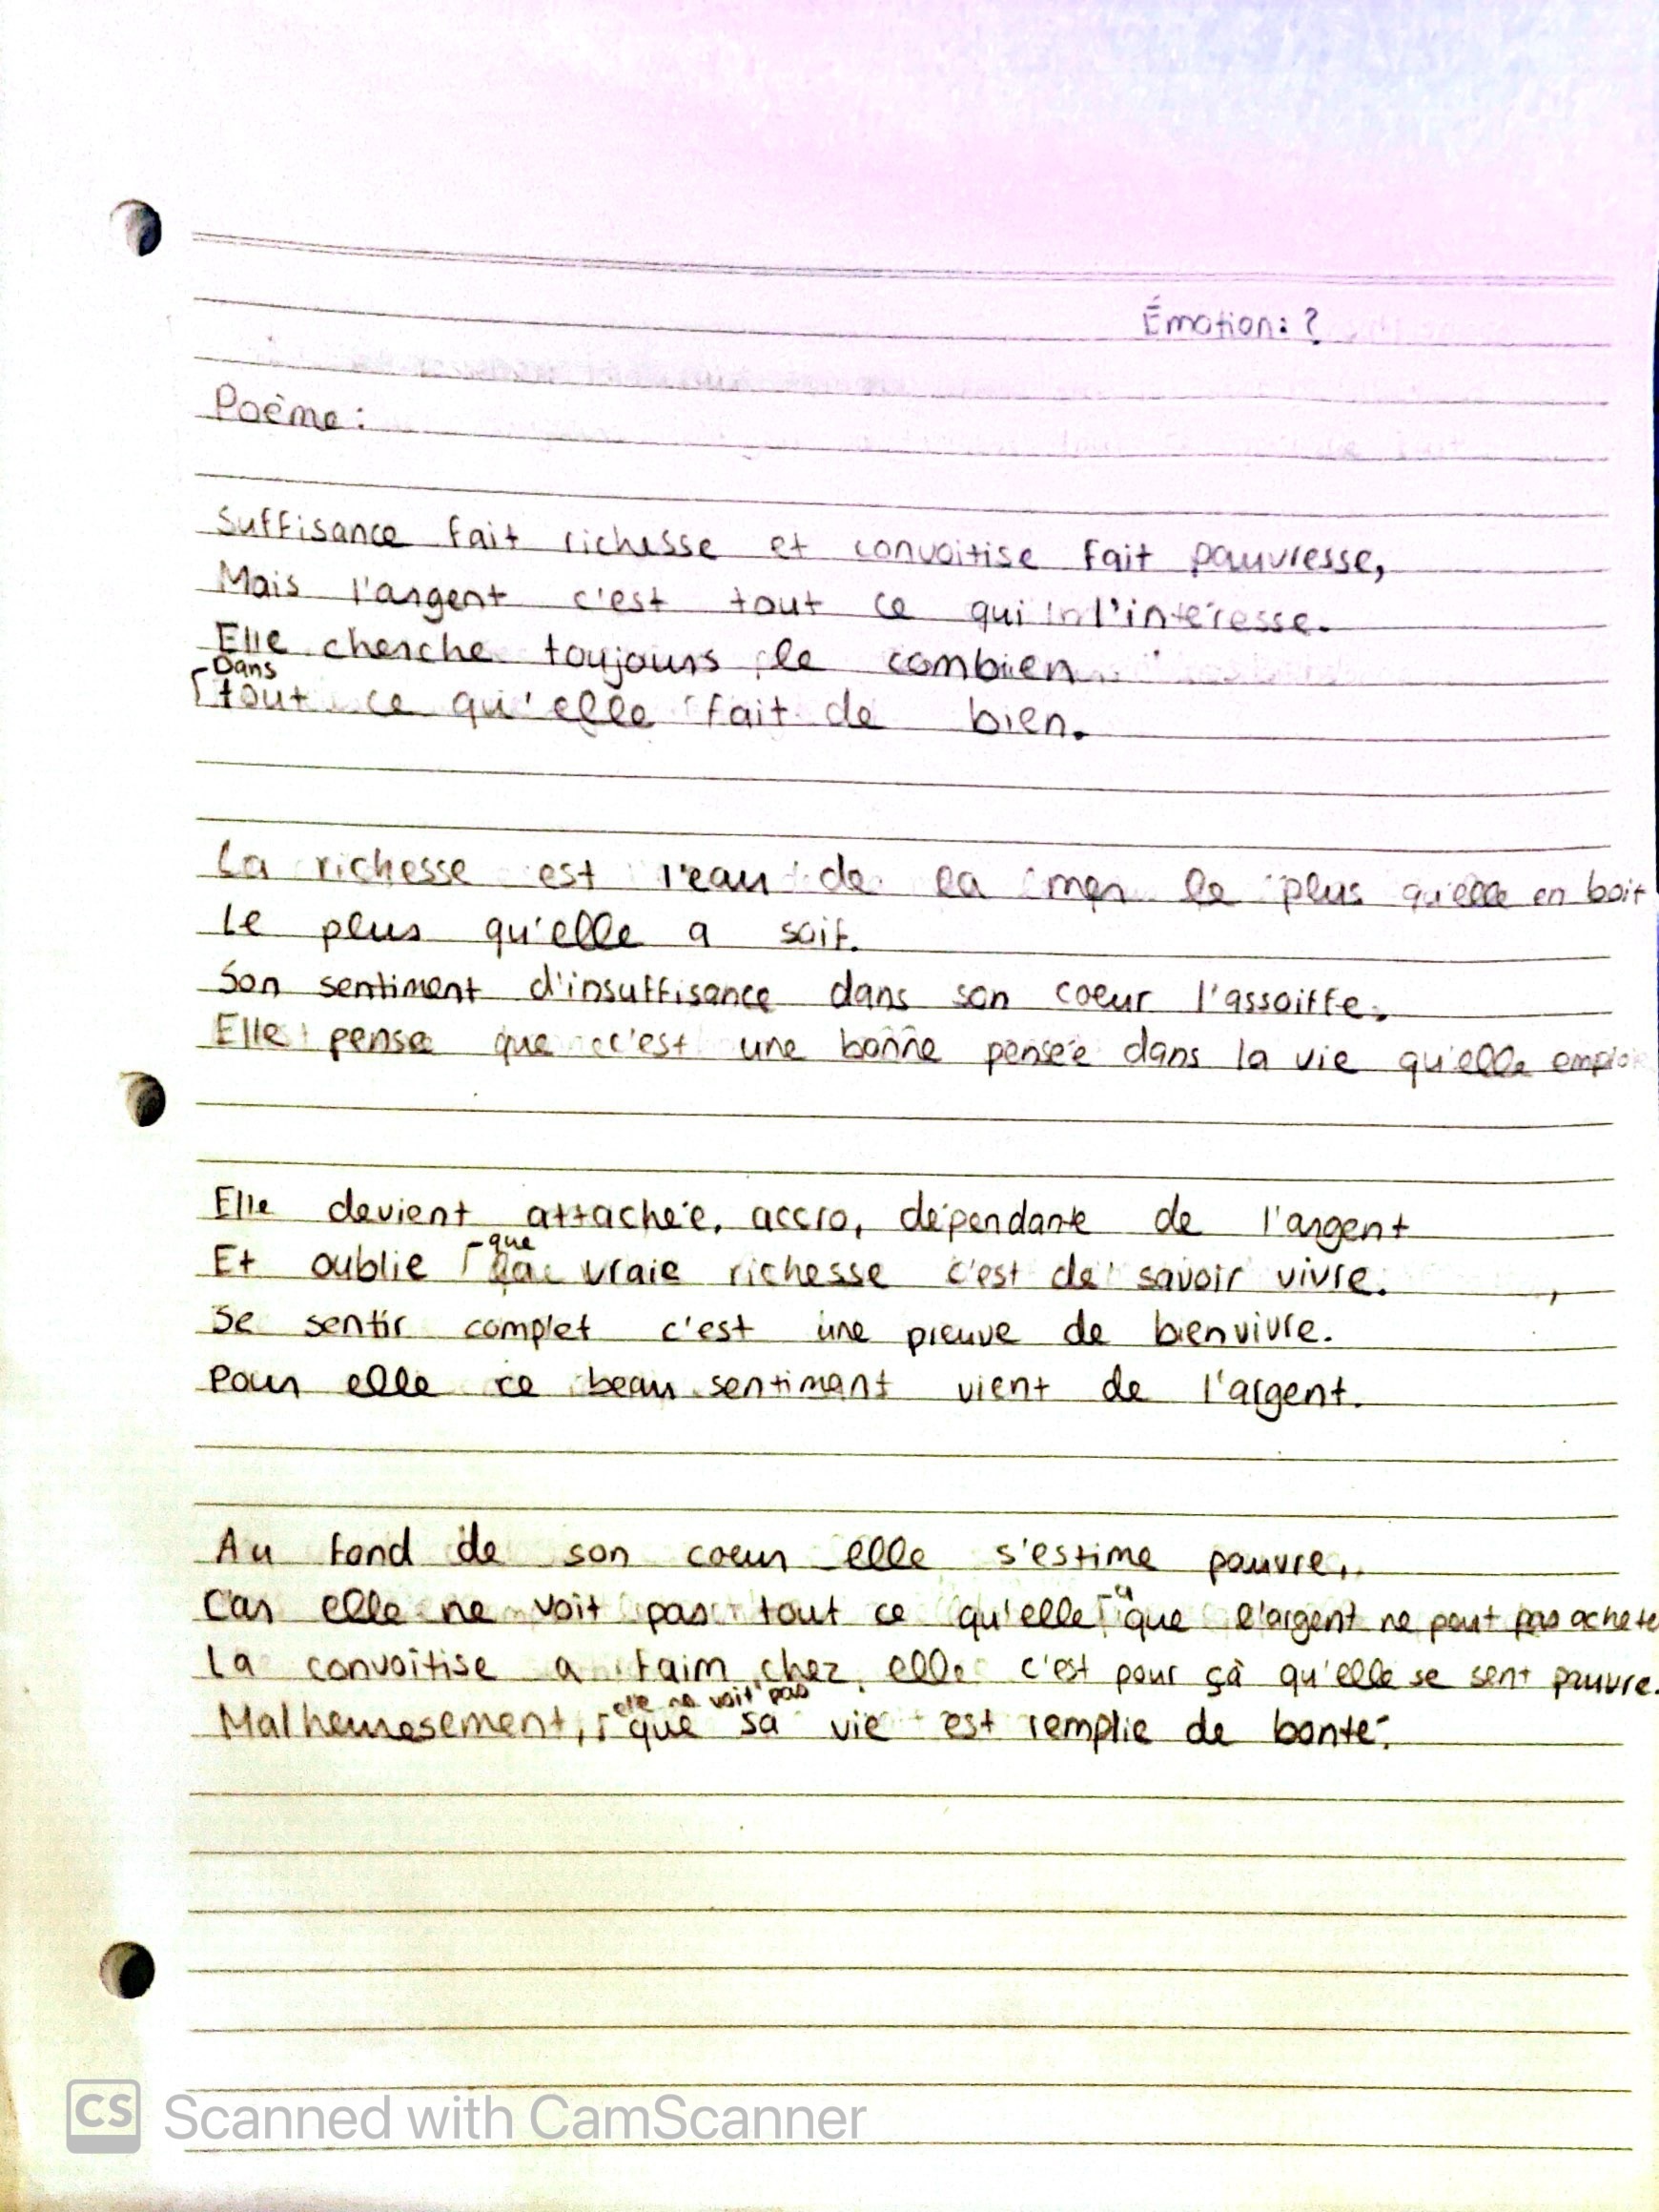 Émotion: ?
Poème:
Suffisance fait richesse et convoitise fait pauvresse,
Mais l'argent c'est tout ce qui l'intéresse.
Elle cherche toujours le combien
Dans
tout ce qu'elle fait de bien.
La richesse est l'eau de la mer le plus qu'elle en boit
Le plus qu'elle a soif.
Son sentiment d'insuffisance dans son coeur l'assoiffe.
Elle pense que c'est une bonne pensée dans la vie qu'elle
Elle devient attachée, accro, dépendante de l'argent
que
Et oublie la vraie richesse c'est de savoir vivre.
Se sentir complet c'est une preuve de bienvivre.
Pour elle ce beau sentiment vient de l'argent.
Au fond de son coeur elle s'estime pauvre,
a
Car elle ne voit pas tout ce qu'elle que l'argent ne peut pas achete
La convoitise a faim chez elle c'est pour çà qu'elle se sent pauvre.
elle ne voit pas
Malheureusement, que sa vie est remplie de bonté.
CS Scanned with CamScanner